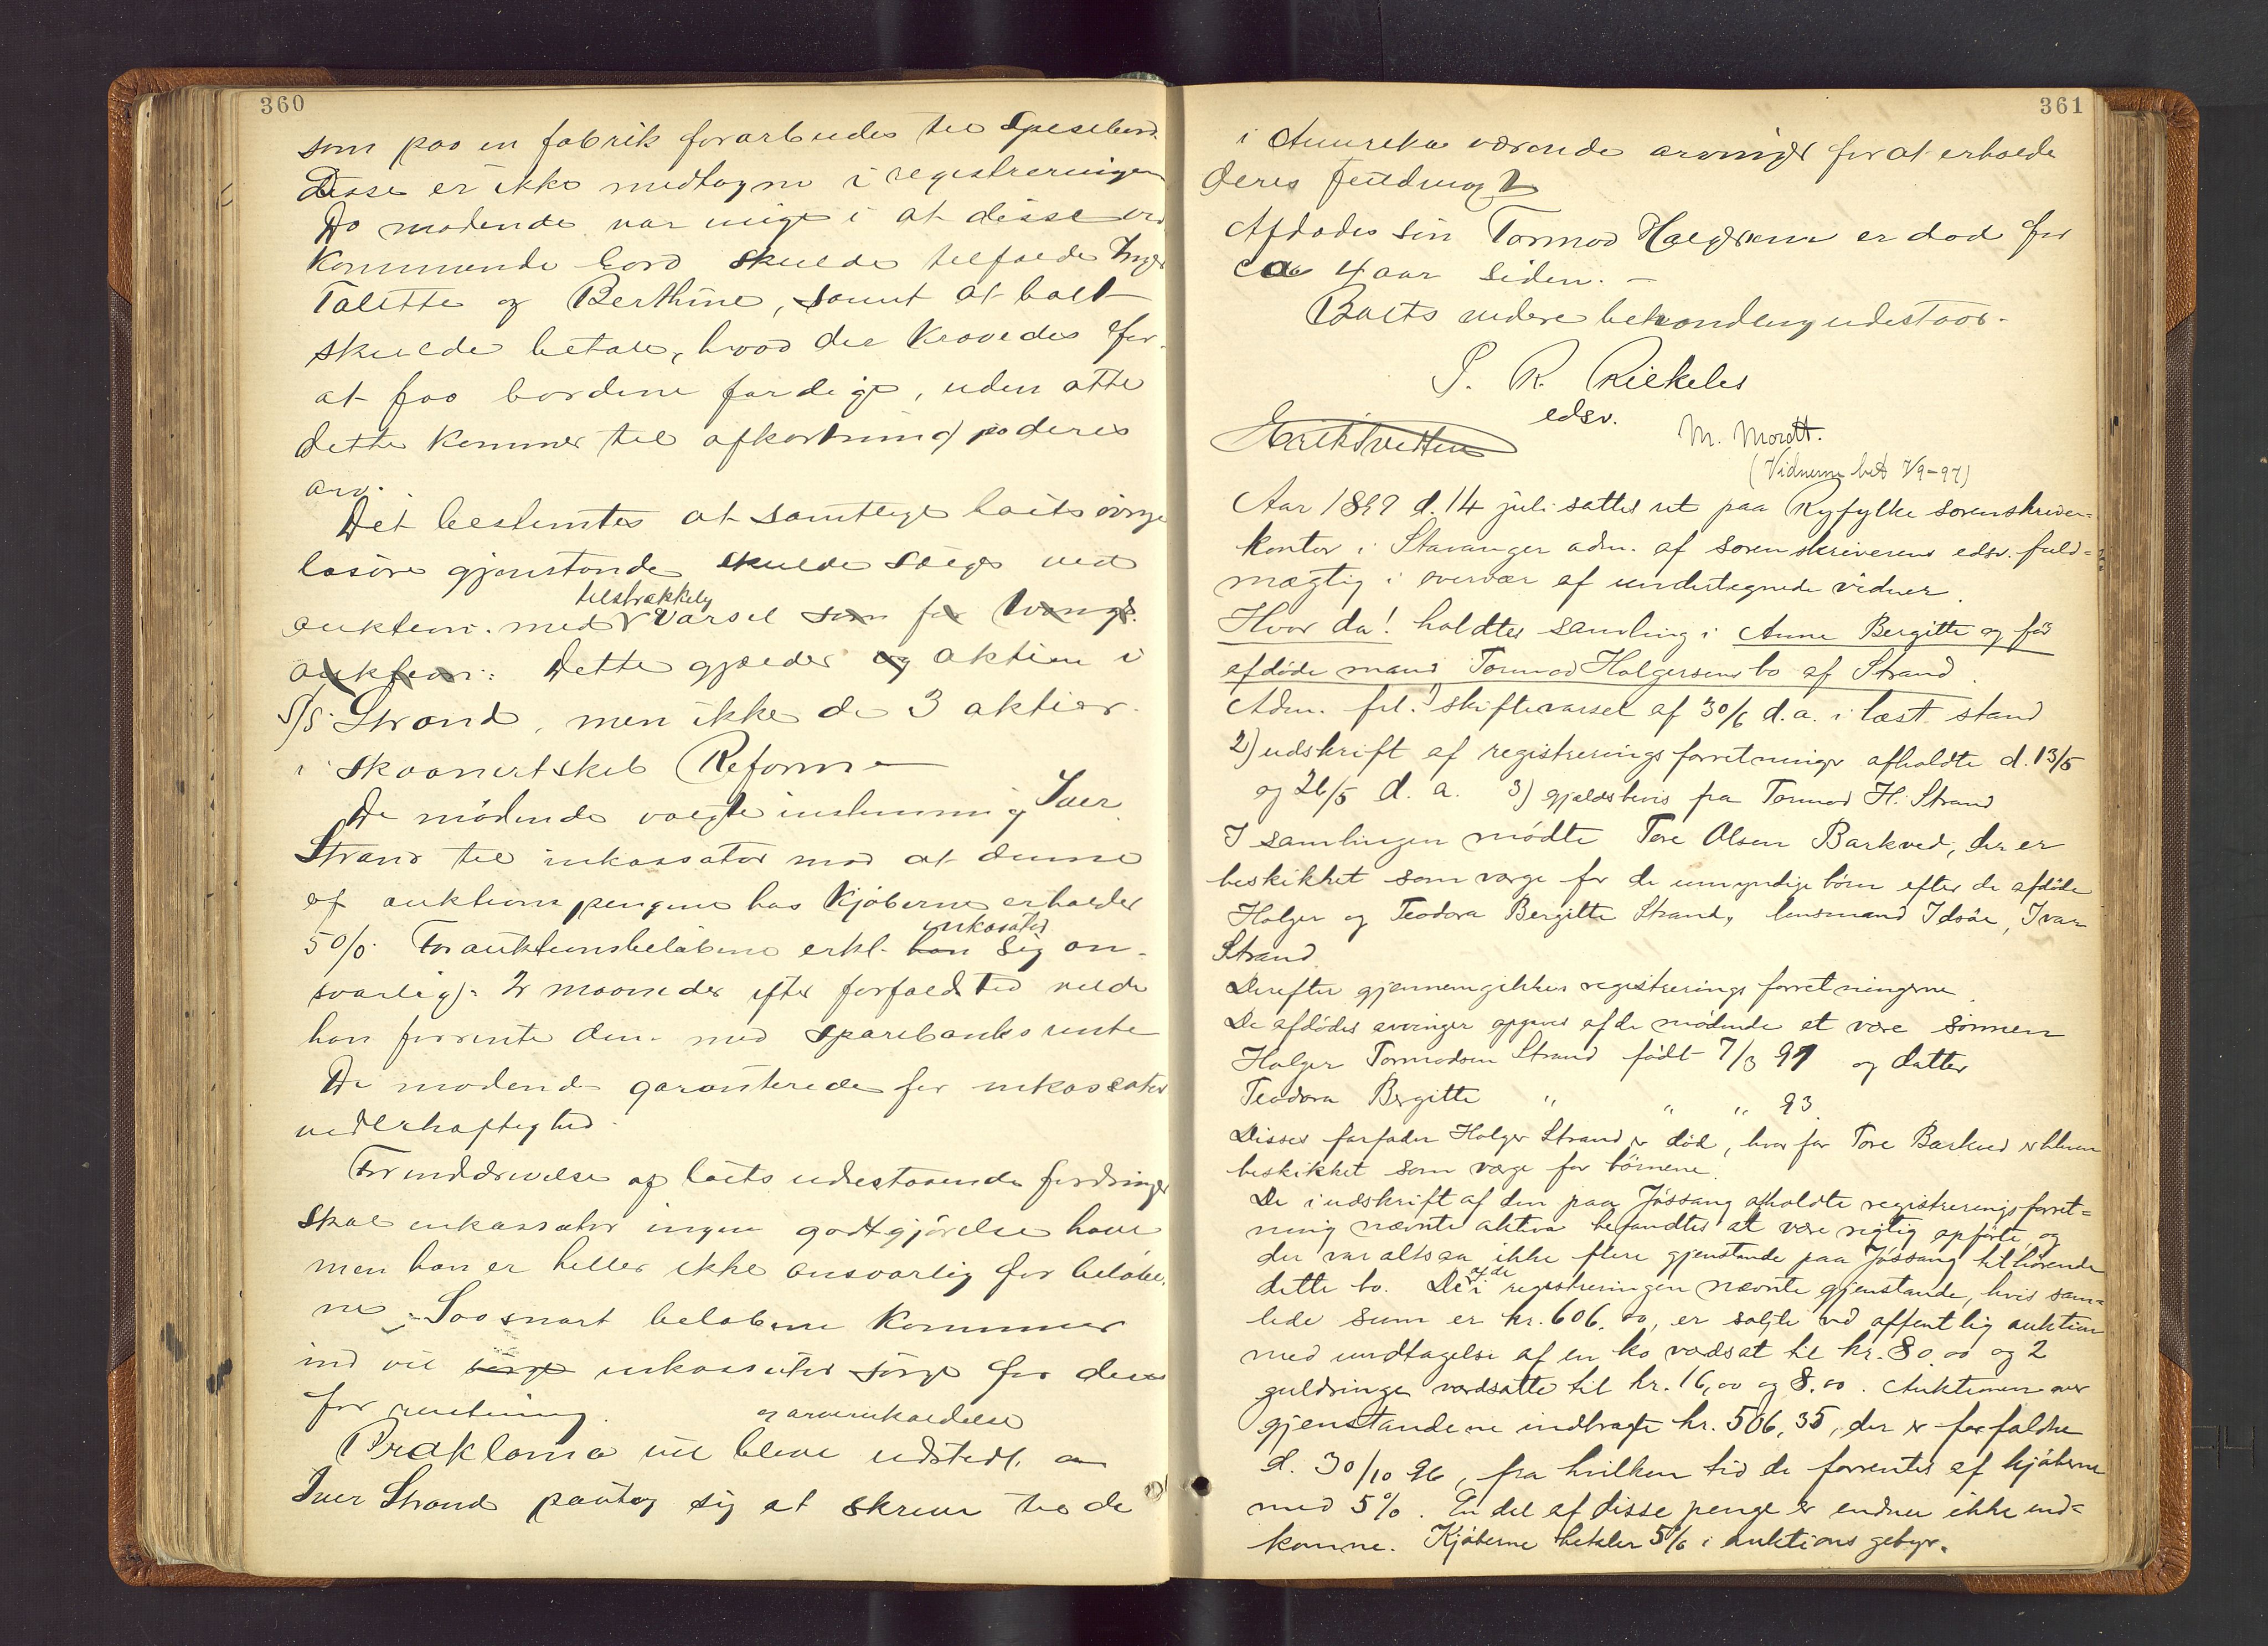 360
som paa en fabrik forarbeides til spisebord.
Disse er ikke medtagne i registreringen
De mødende var enige i at disse ved
kommende bord skulde tilfalde Inger
Talette og Berthine, samt at boet
skulde betale, hvad der krævedes for
at faa bordene færdige, uden at
dette kommer til afkortning i deres
arv.
Det bestemtes at samtlige boets øvrige
løsøre gjenstande skulde sælges ved
tilstrækkelig
auktion. med varsel som for tvangs
auktion: Dette gjælder og aktien i
S/S. Strand, men ikke de 3 aktier
i skonnertskib Reform
De mødende valgte enstemmig Iver
Strand til inkassator mod at denne
af auktionspengene hos kjøberne erholder
inkasator
5 0/0. For auktionsbeløbene erkl. han sig an-
svarlig. 2 maaneder efter forfaldstid vilde
han forrente dem med sparebanks rente
De mødende garanterede for inkassators
vederhæftighed.
For inddrivelse af boets udestaaende fordringer
skal inkassator ingen godtgjørelse have
men han er heller ikke ansvarlig for beløbe-
ne. Saa snart beløbene kommer
ind vil sørge inkassator sørge for deres
forrentning.
og arveindkaldelse
Proklama vil blive udstedt.
Iver Strand paatog sig at skrive til de
361
i Amerika værende arvinger for at erholde
deres fuldmagt
Afdødes søn Tormod Holgersen er død for
ca 4 aar siden. -
Boets videre behandling udestaar.
P. R. Rickeles
edsv.
M. Mordt.
(Vidnerne bet 7/9-97)
Aar 1897 d. 14 juli sattes ret paa Ryfylke sorenskriver-
kontor i Stavanger adm. af sorenskriverens edsv. fuld-
mægtig i overvær af undertegnede vidner.
Hvor da! holdtes samling i Anne Bergitte og før
afdøde mand Tormod Holgersens bo af Strand.
Adm. frl. 1) skiftevarsel af 30/6 d. a. i læst stand
2) udskrift af registreringsforretninger afholdte d. 13/5
og 26/5 d. a. 3) gjældsbevis fra Tormod H. Strand
I samlingen mødte Tore Olsen Barkved, der er
beskikket som værge for de umyndige børn efter de afdøde
Holger og Teodora Bergitte Strand, lensmand Idsøe, Ivar
Strand
Derefter gjennemgikkes registreringsforretningerne.
De afdødes arvinger opgives af de mødende at være sønnen
Holger Tormodsen Strand født 7/3 91 og datter
Teodora Bergitte " " " 93.
Disses farfader Holger Strand er død, hvorfor Tore Barkved er bleven
beskikket som værge for børnene.
De i udskrift af den paa Jøssang afholdte registreringsforret-
ning nævnte aktiva befandtes at være rigtig opførte, og
der var altsaa ikke flere gjenstande paa Jøssang tilhørende
dette bo. De i registreringen nævnte gjenstande, hvis sam-
lede sum er kr. 606.00, er solgte ved offentlig auktion
med undtagelse af en ko værdsat til kr. 80.00 og 2
guldringe værdsatte til kr. 16,00 og 8.00. Auktionen over
gjenstandene indbragte kr. 506,35, der er forfaldne
d. 30/10 96, fra hvilken tid de forrentes af kjøberne
med 5%. En del af disse penge er endnu ikke ind-
komne. Kjøberne betaler 5% i auktions gebyr.